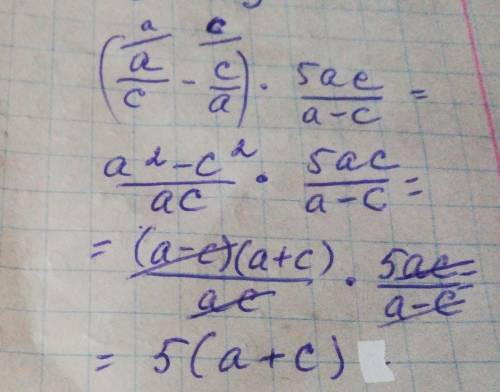 (a/c - c/a) · 5ac/(a-c) =
(a²-c²)/(ac) · 5ac/(a-c) =
= (a-c)(a+c)/(ac) · 5ac/(a-c) =
= 5(a+c)